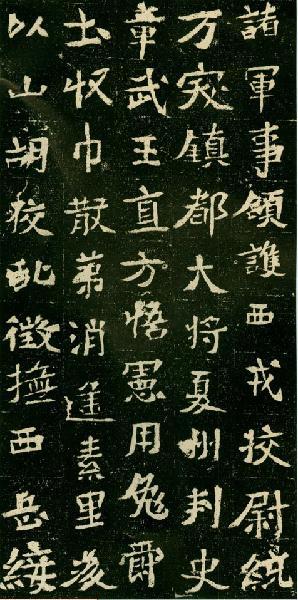 諸軍事領護西戎挍尉統
万突鎮都大将夏州刾史
章武王直方悟憲用免爵
土收巾散苐消遥素里後
以山胡狡乱徵撫西岳綏